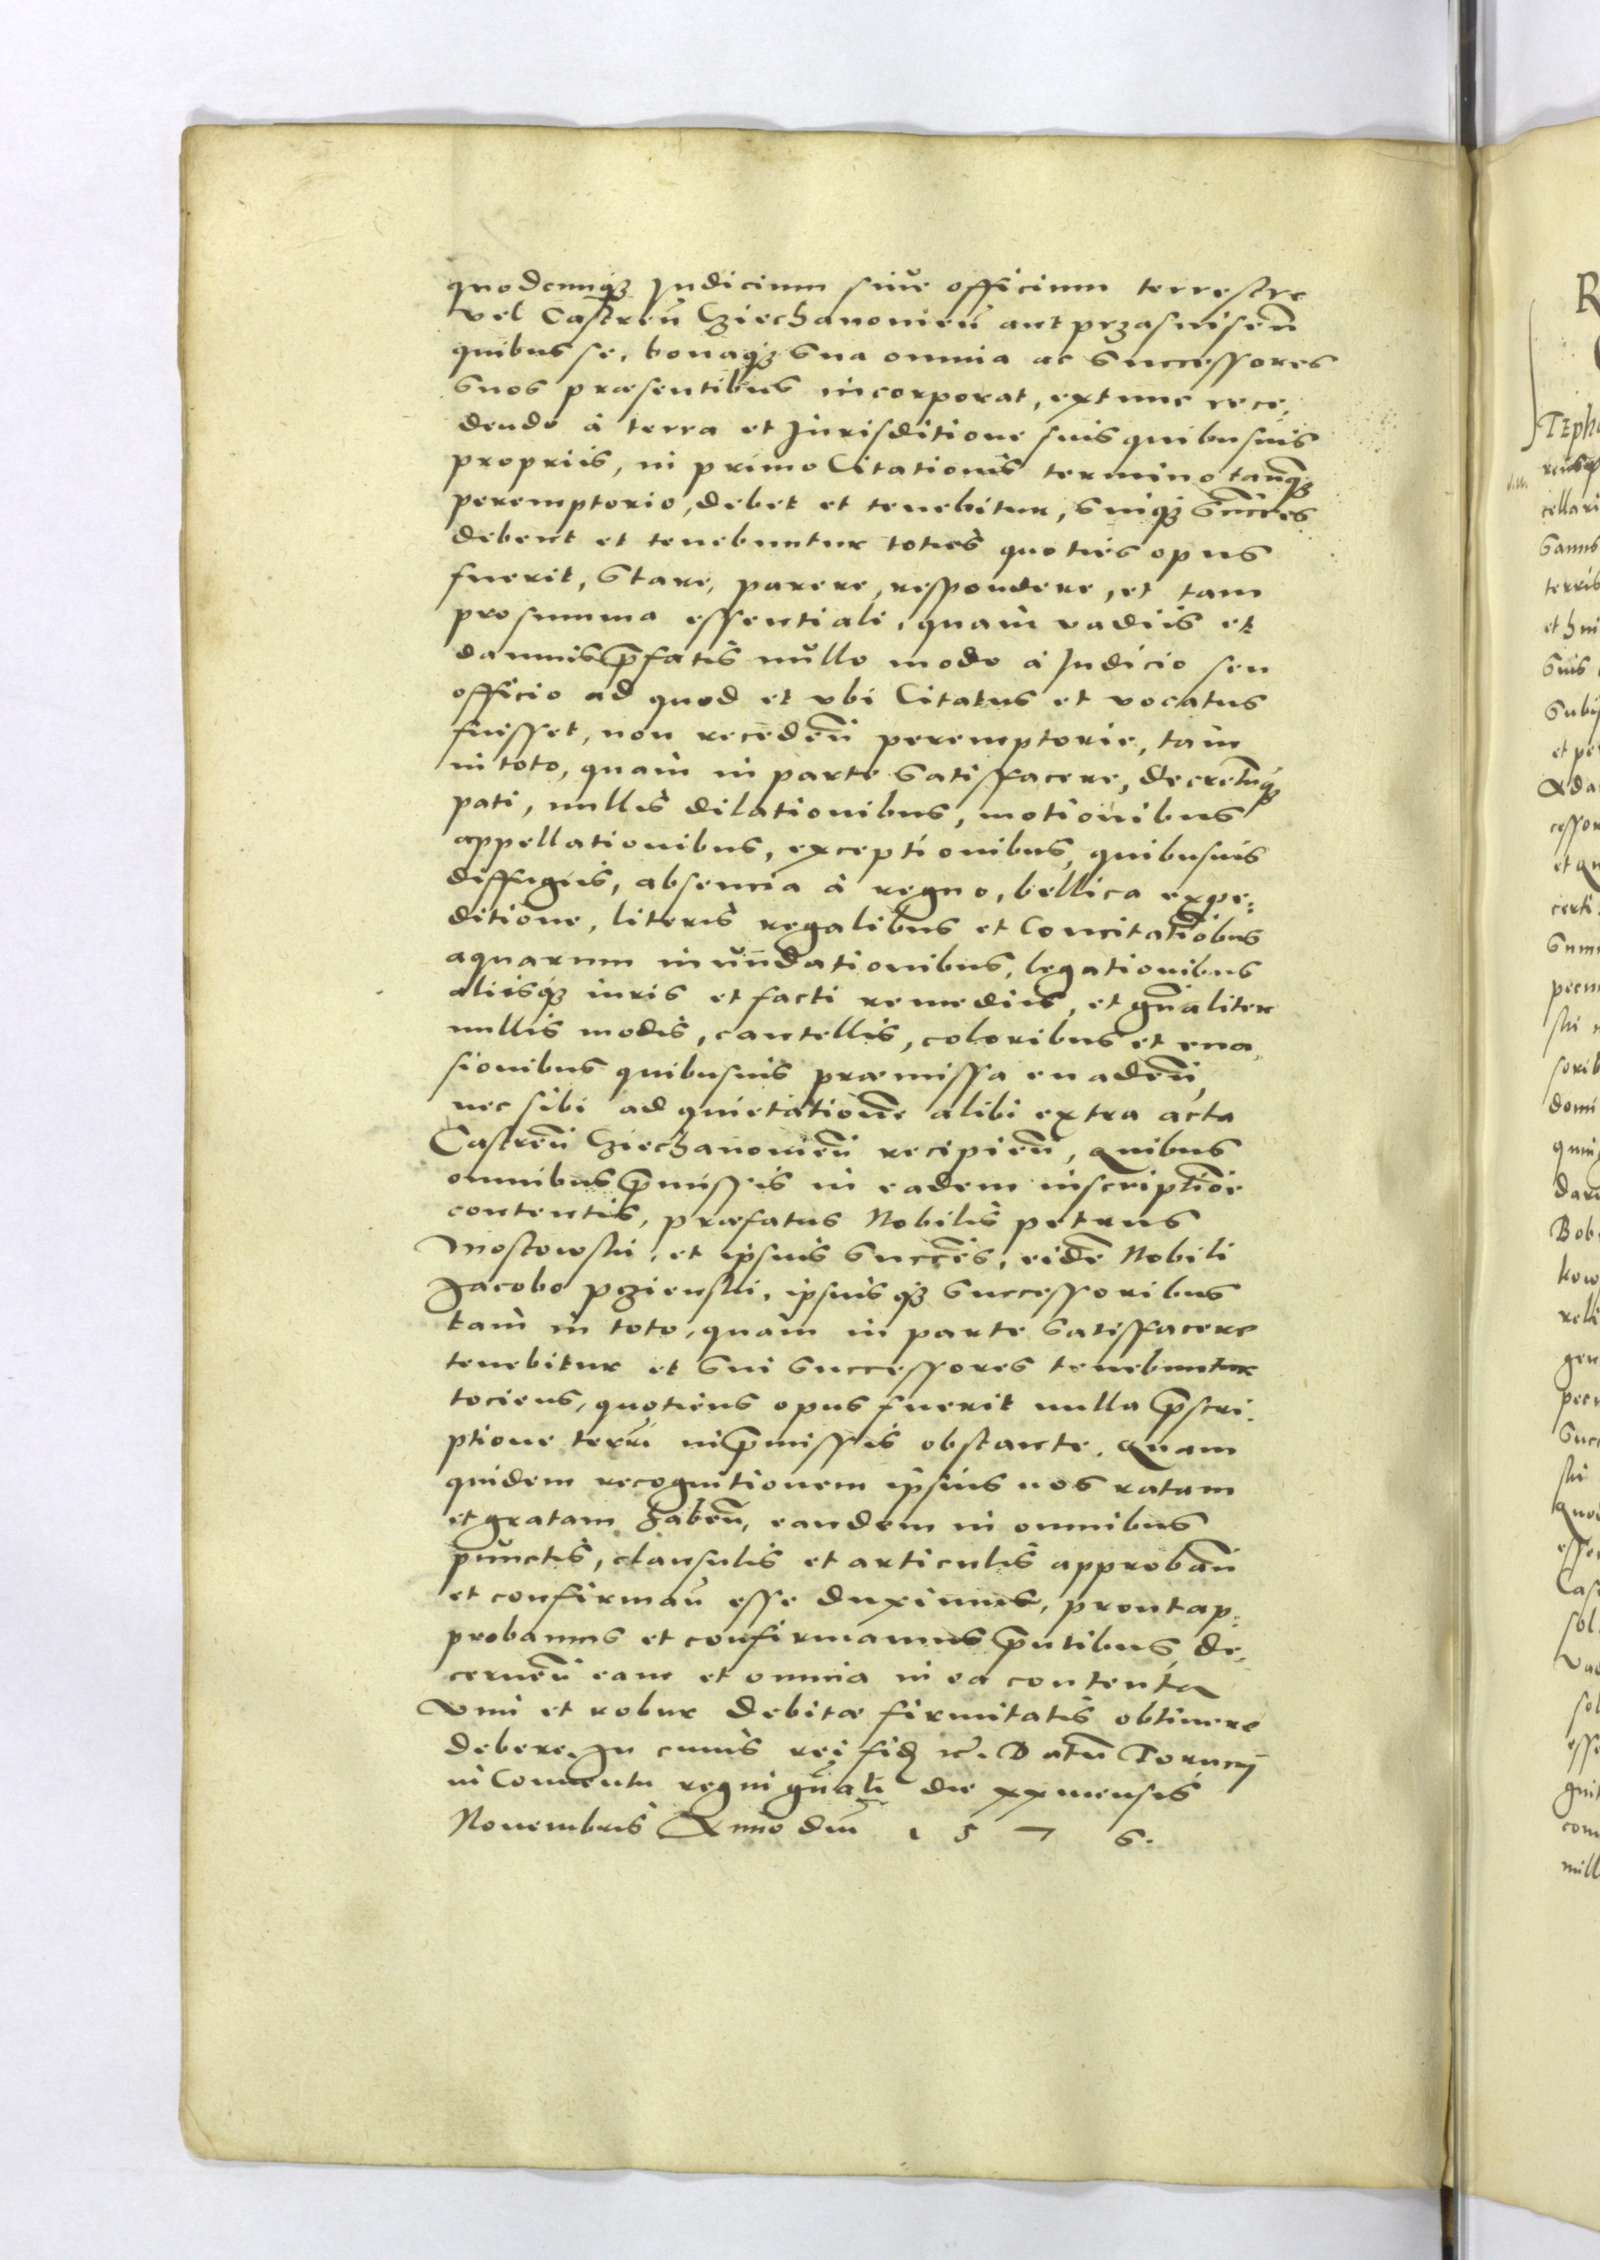 quodcunqꝫ Judicium siue officium terrestre
vel Castreñ Cziechanovieñ aut przasnisеñ
quibus se, bonaqꝫ sua omnia ac successores
suos præsentibus incorporat, extunc rece.
dendo à terra et Jurisditione suis quibusuis
propriis, in primo Citationis termino tanqꝫ
peremptorio, debet et tenebitur, suiqꝫ succes̃
debent et tenebuntur toties quoties opus
fuerit, stare, parere, respondere, et tam
pro summa essentiali, quàm vadiis et
damnis p̃fatis nullo modo à Judicio seu
officio ad quod et vbi Citatus et vocatus
fuisset, non recedeñ peremptorie, tàm
in toto, quàm in parte satisfacere, decretũqꝫ
pati, nullis dilationibus, motionibus
appellationibus, exceptionibus, quibusuis
diffugiis, absencia à regno, bellica expe:
ditione, literis regalibus et Concitatiõbus
aquarum inundationibus, legationibus
aliisqꝫ iuris et facti remediis, et gñaliter
nullis modis, cautellis, coloribus et eua,
sionibus quibusuis præmissa euadeñ,
nec sibi ad quietationẽ alibi extra acta
Castreñ Cziechanovieñ recipieñ, Quibus
omnibus p̃missis in eadem inscriptiõe
contentis, præfatus Nobilis petrus
Mostowski, et ipsius succes̃, eidẽ Nobili
Jacobo pzienski, ipsiusqꝫ successoribus
tàm in toto, quàm in parte satisfacere
tenebitur et sui successores tenebuntur
tociens, quotiens opus fuerit nulla p̃scri.
ptione terrr̃ in p̃missis obstante. Quam
quidem recognitionem ipsius nos ratam
et gratam habeñ, eandem in omnibus
punctis, clausulis et articulis approbañ
et confirmañ esse duximus, prout ap:
probamus et confirmamus p̃ntibus, de.
cerneñ eam et omnia in ea contenta
vim et robur debitæ firmitatis obtinere
debere. In cuius rei fid etc̃. Datũ Torunij
in Conuentu regni gñali die xx mensis
Nouembris Anno dñi 1 5 7 6.